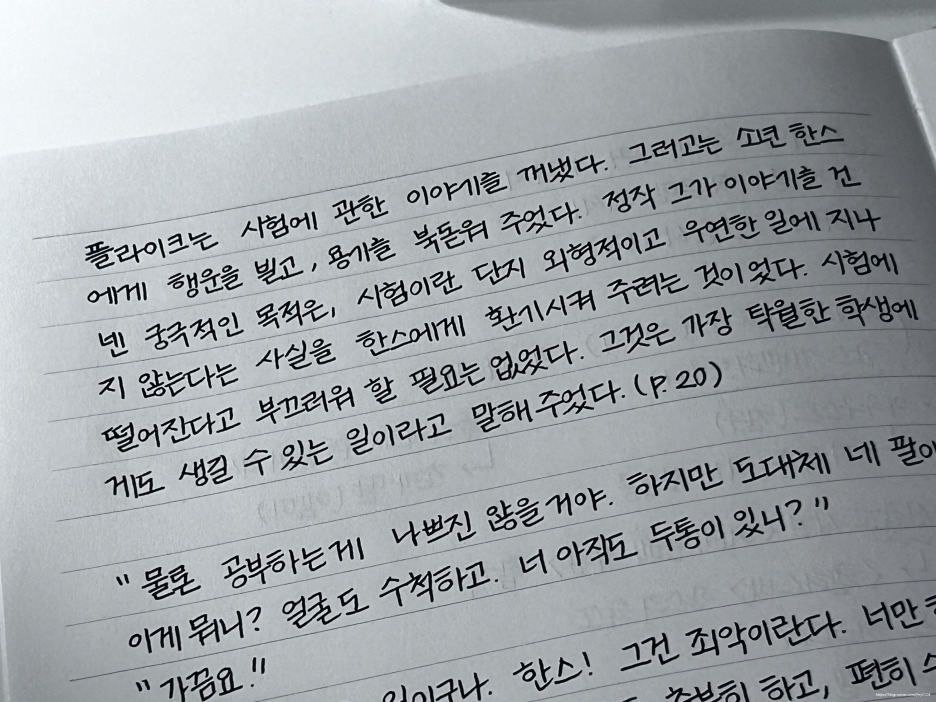 플라이크는 시험에 관한 이야기를 꺼냈다. 그러고는 소년 한스
에게 행운을 빌고, 용기를 북돋워 주었다. 정작 그가 이야기를 건
넨 궁극적인 목적은, 시험이란 단지 외형적이고 우연한 일에 지나
지 않는다는 사실을 한스에게 환기시켜 주려는 것이었다. 시험에
떨어진다고 부끄러워 할 필요는 없었다. 그것은 가장 탁월한 학생에
게도 생길 수 있는 일이라고 말해 주었다. (p. 20)
" 물론 공부하는게 나쁘진 않을거야. 하지만 도대체 네 팔이
이게 뭐니? 얼굴도 수척하고. 너 아직도 두통이 있니? "
" 가끔요. "
한스! 그건 죄악이란다. 너만
하고, 편히